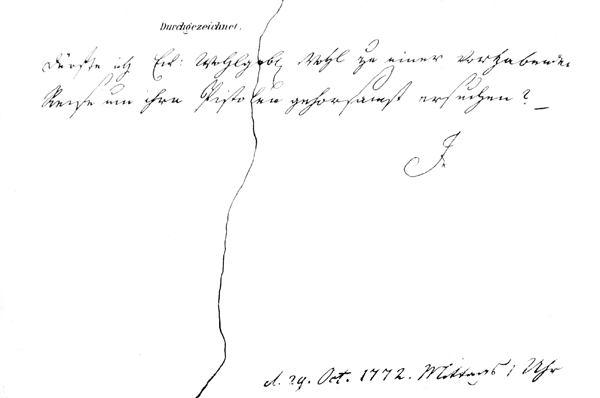 Durchgezeichnet.
Dürfte ich Ew: Wohlgeb. Wohl zu einer vorhabenden
Reise um ihre Pistolen gehorsamst ersuchen? _
J.
d. 29. Oct. 1772. Mittags 1 Uhr